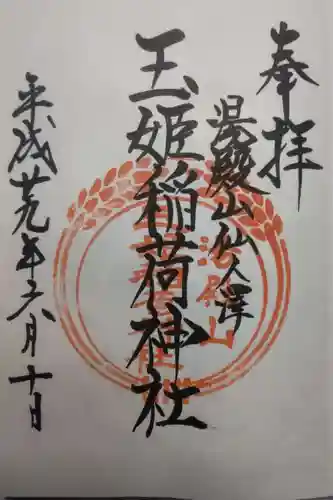 奉拝
湯殿山仙人澤
玉姫稲荷神社
平成廿九年六月十日